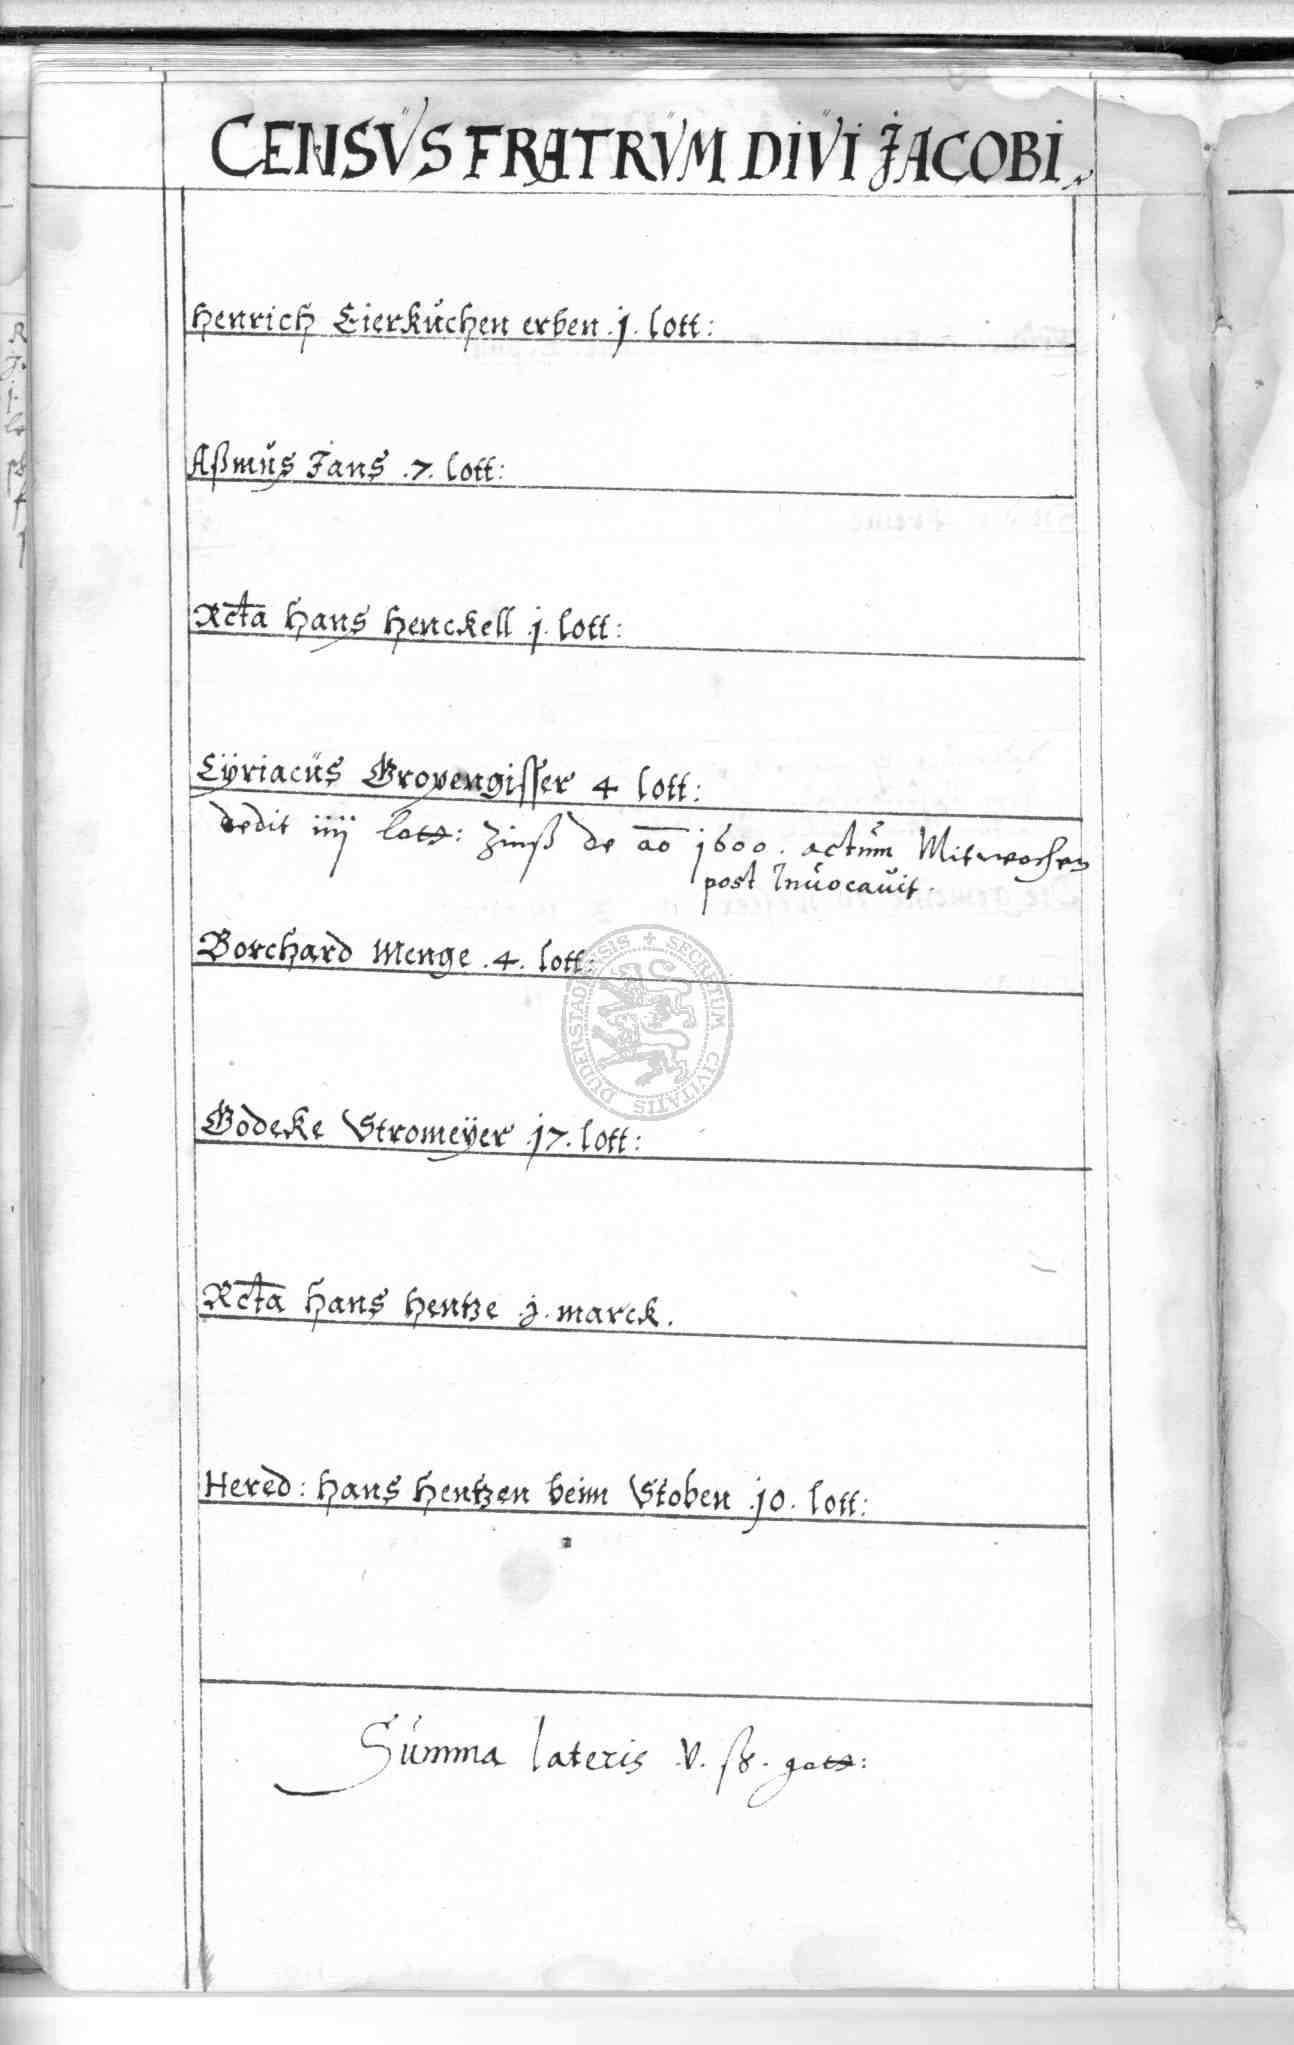 CENSVS FRATRVM DIVI JACOBI
Henrich Eierkuchen erben .j. lott:
Aßmus Jans .7. lott:
Rcta Hans Henckell .j. lott:
Cÿriacus Gropengisser 4 lott:
dedit iiij lott: Zinß de ao 1600. actum Mitwochen
post Invocavit.
Borchard Menge .4. lott:
DUDERSTADENSIS + SECRETUM CIVITATIS
Godeke Stromeÿer .j7. lott:
Rcta Hans Hentze .j. marck.
Hered: Hans Hentzen beim Stoben .j0. lott:
Summa lateris .V. ß. gott: